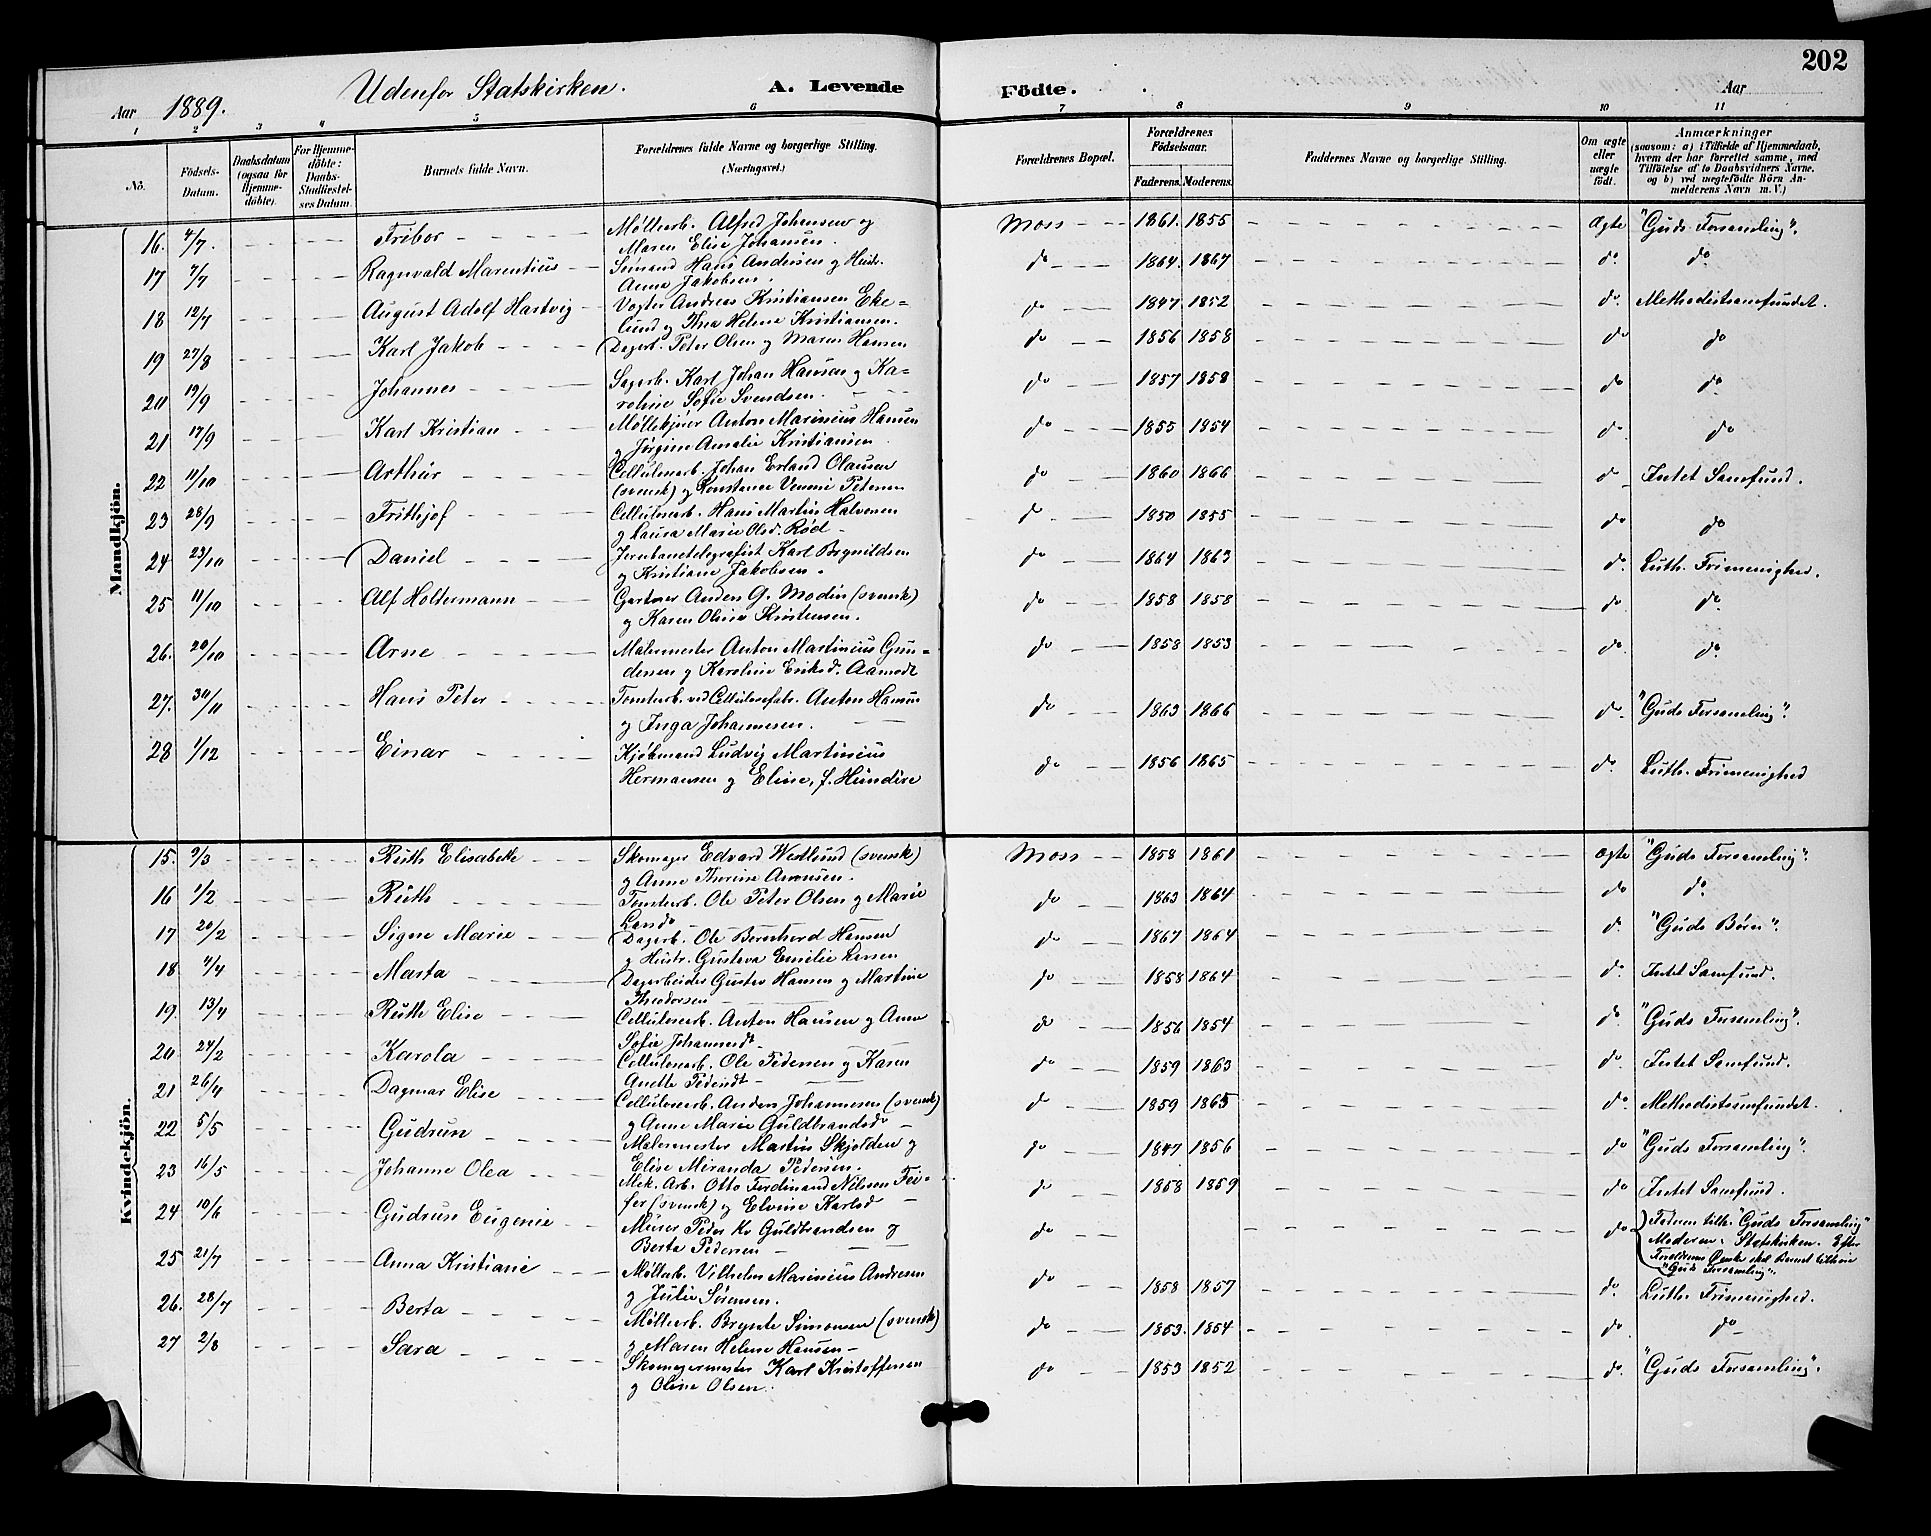 202
Aar 1889. Udenfor Statskirken. A. Levende Födte. Aar
1 2 3 4 5 6 7 8 9 10 11
No. Födsels-Datum. Daabsdatum (ogsaa for Hjemme-döbte). For Hjemme-döbte: Daabs-Stadfæstel-ses Datum. Barnets fulde Navn. Forældrenes fulde Navne og borgerlige Stilling. (Næringsvei.) Forældrenes Bopæl. Forældrenes Födselsaar. Faderens. Moderens. Faddernes Navne og borgerlige Stilling. Om ægte eller uægte födt. Anmærkninger (saasom: a) i Tilfælde af Hjemmedaab, hvem der har forrettet samme, med Tilföielse af to Daabsvidners Navne, og b) ved uægtefödte Börn An-melderens Navn m. V.)
Mandkjön.
16. 4/7. Tribor Møllearb. Alfred Johansen og Moss 1861. 1855 Ægte "Guds Forsamling".
Maren Elise Johansen.
17 7/7 Ragnvald Marentius Sömand Hans Andersen og Hustr. do 1864. 1867 do. do
Anna Jakobsen.
18 12/7 August Adolf Hartvig Vogter Andreas Kristiansen Eke= do 1847. 1852 do. Methodistsamfundet.
lund og Thea Helene Kristiansen.
19 27/8 Karl Jakob Dagarb. Peter Olsen og Maren Hansen do 1856 1858 do do
20 19/9 Johannes Sagarb. Karl Johan Hansen og Ka= do 1857 1858 do do
roline Sofie Svendsen.
21 17/9 Karl Kristian Møllekjører Anton Marinius Hansen do 1855 1854 do. do
og Jørgine Amalie Kristiansen
22 11/10 Arthur Cellulosearb. Johan Erland Olausen do 1860 1866 do Intet Samfund.
(svensk) og Konstance Petersen
23 28/9 Frithjof Cellulosearb. Hans Martin Halvorsen do 1850 1855 do do
og Laura Marie Olsd. Rød
24 23/10 Daniel Jernbanetelegrafist Karl Brynildsen do 1864 1863 do. Luth. Frimenighed.
og Kristiane Jakobsen.
25 11/10 Alf Holtermann Gartner Anders G. Modin (svensk) do 1858 1858 do do
og Karen Oline Kristensen.
26. 20/10 Arne Malermester Anton Martinius Gun= do 1858 1853 do. do.
dersen og Karoline Eriksd. Aamodt
27. 30/11 Hans Peter Tomtearb. ved Cellulosefabr. Anton Hansen do 1863 1866 do. "Guds Forsamling".
og Inga Johannesen.
28 1/12 Einar Kjöbmand Ludvig Martinius do 1856 1865 do. Luth. Frimenighed
Hermansen og Eline, f. Hundere
Kvindekjön.
15. 9/3 Ruth Elisabeth Skomager Edvard Westlund (svensk) Moss 1858 1861 ægte "Guds Forsamling".
og Anne Thorine Aronsen.
16 1/2 Ruth Tomtearb. Ole Peter Olsen og Marie do 1863 1864 do do.
Lande
17 20/2 Signe Marie Dagarb. Ole Bernhard Hansen do 1867 1864 do. "Guds Børn".
og Hustr. Gustava Emilie Larsen
18. 4/4 Marta Dagarbeider Gustav Hansen og Martine do 1858 1864 do. Intet Samfund.
Theodorsen
19. 13/4 Ruth Elise Cellulosearb. Anton Hansen og Anne do 1856 1854 do. "Guds Forsamling".
Sofie Johannesdt.
20 24/2 Karola Cellulosearb. Ole Pedersen og Karen do 1859 1863 do. Intet Samfund.
Anette Pedersdt
21 26/4 Dagmar Elise Cellulosearb. Anders Johannesen (svensk) do 1859 1865 do. Methodistsamfundet.
og Anne Marie Guldbrandsd
22 5/5 Gudrun Malermester Martin Skjolden og do 1847 1856 do "Guds Forsamling".
Elise Miranda Pedersen.
23 16/5 Johanne Olea Mek. Arb. Otto Ferdinand Nilsson Fei= do 1858 1859 do Intet Samfund.
fer (svensk) og Elvine Karlsd
24 10/6 Gudrun Eugenie Murer Peder Kr Guldbrandsen og do do Faderen tilh. "Guds Forsamling"
Berta Pedersen Moderen: Statskirken. Efter
Forældrenes Ønske skal Barnet tilhøre
"Guds Forsamling".
25 21/7 Anna Kristiane Møllearb. Vilhelm Marinius Andresen do 1858 1857 do. Luth. Frimenighed.
og Julie Sørensen.
26. 28/7 Berta Møllearb. Brynte Simonsen (svensk) do 1853. 1854 do do
og Maren Helene Hansen
27 2/8 Sara Skomagermester Karl Kristoffersen do 1853 1852 do. "Guds Forsamling".
og Oline Olsen.